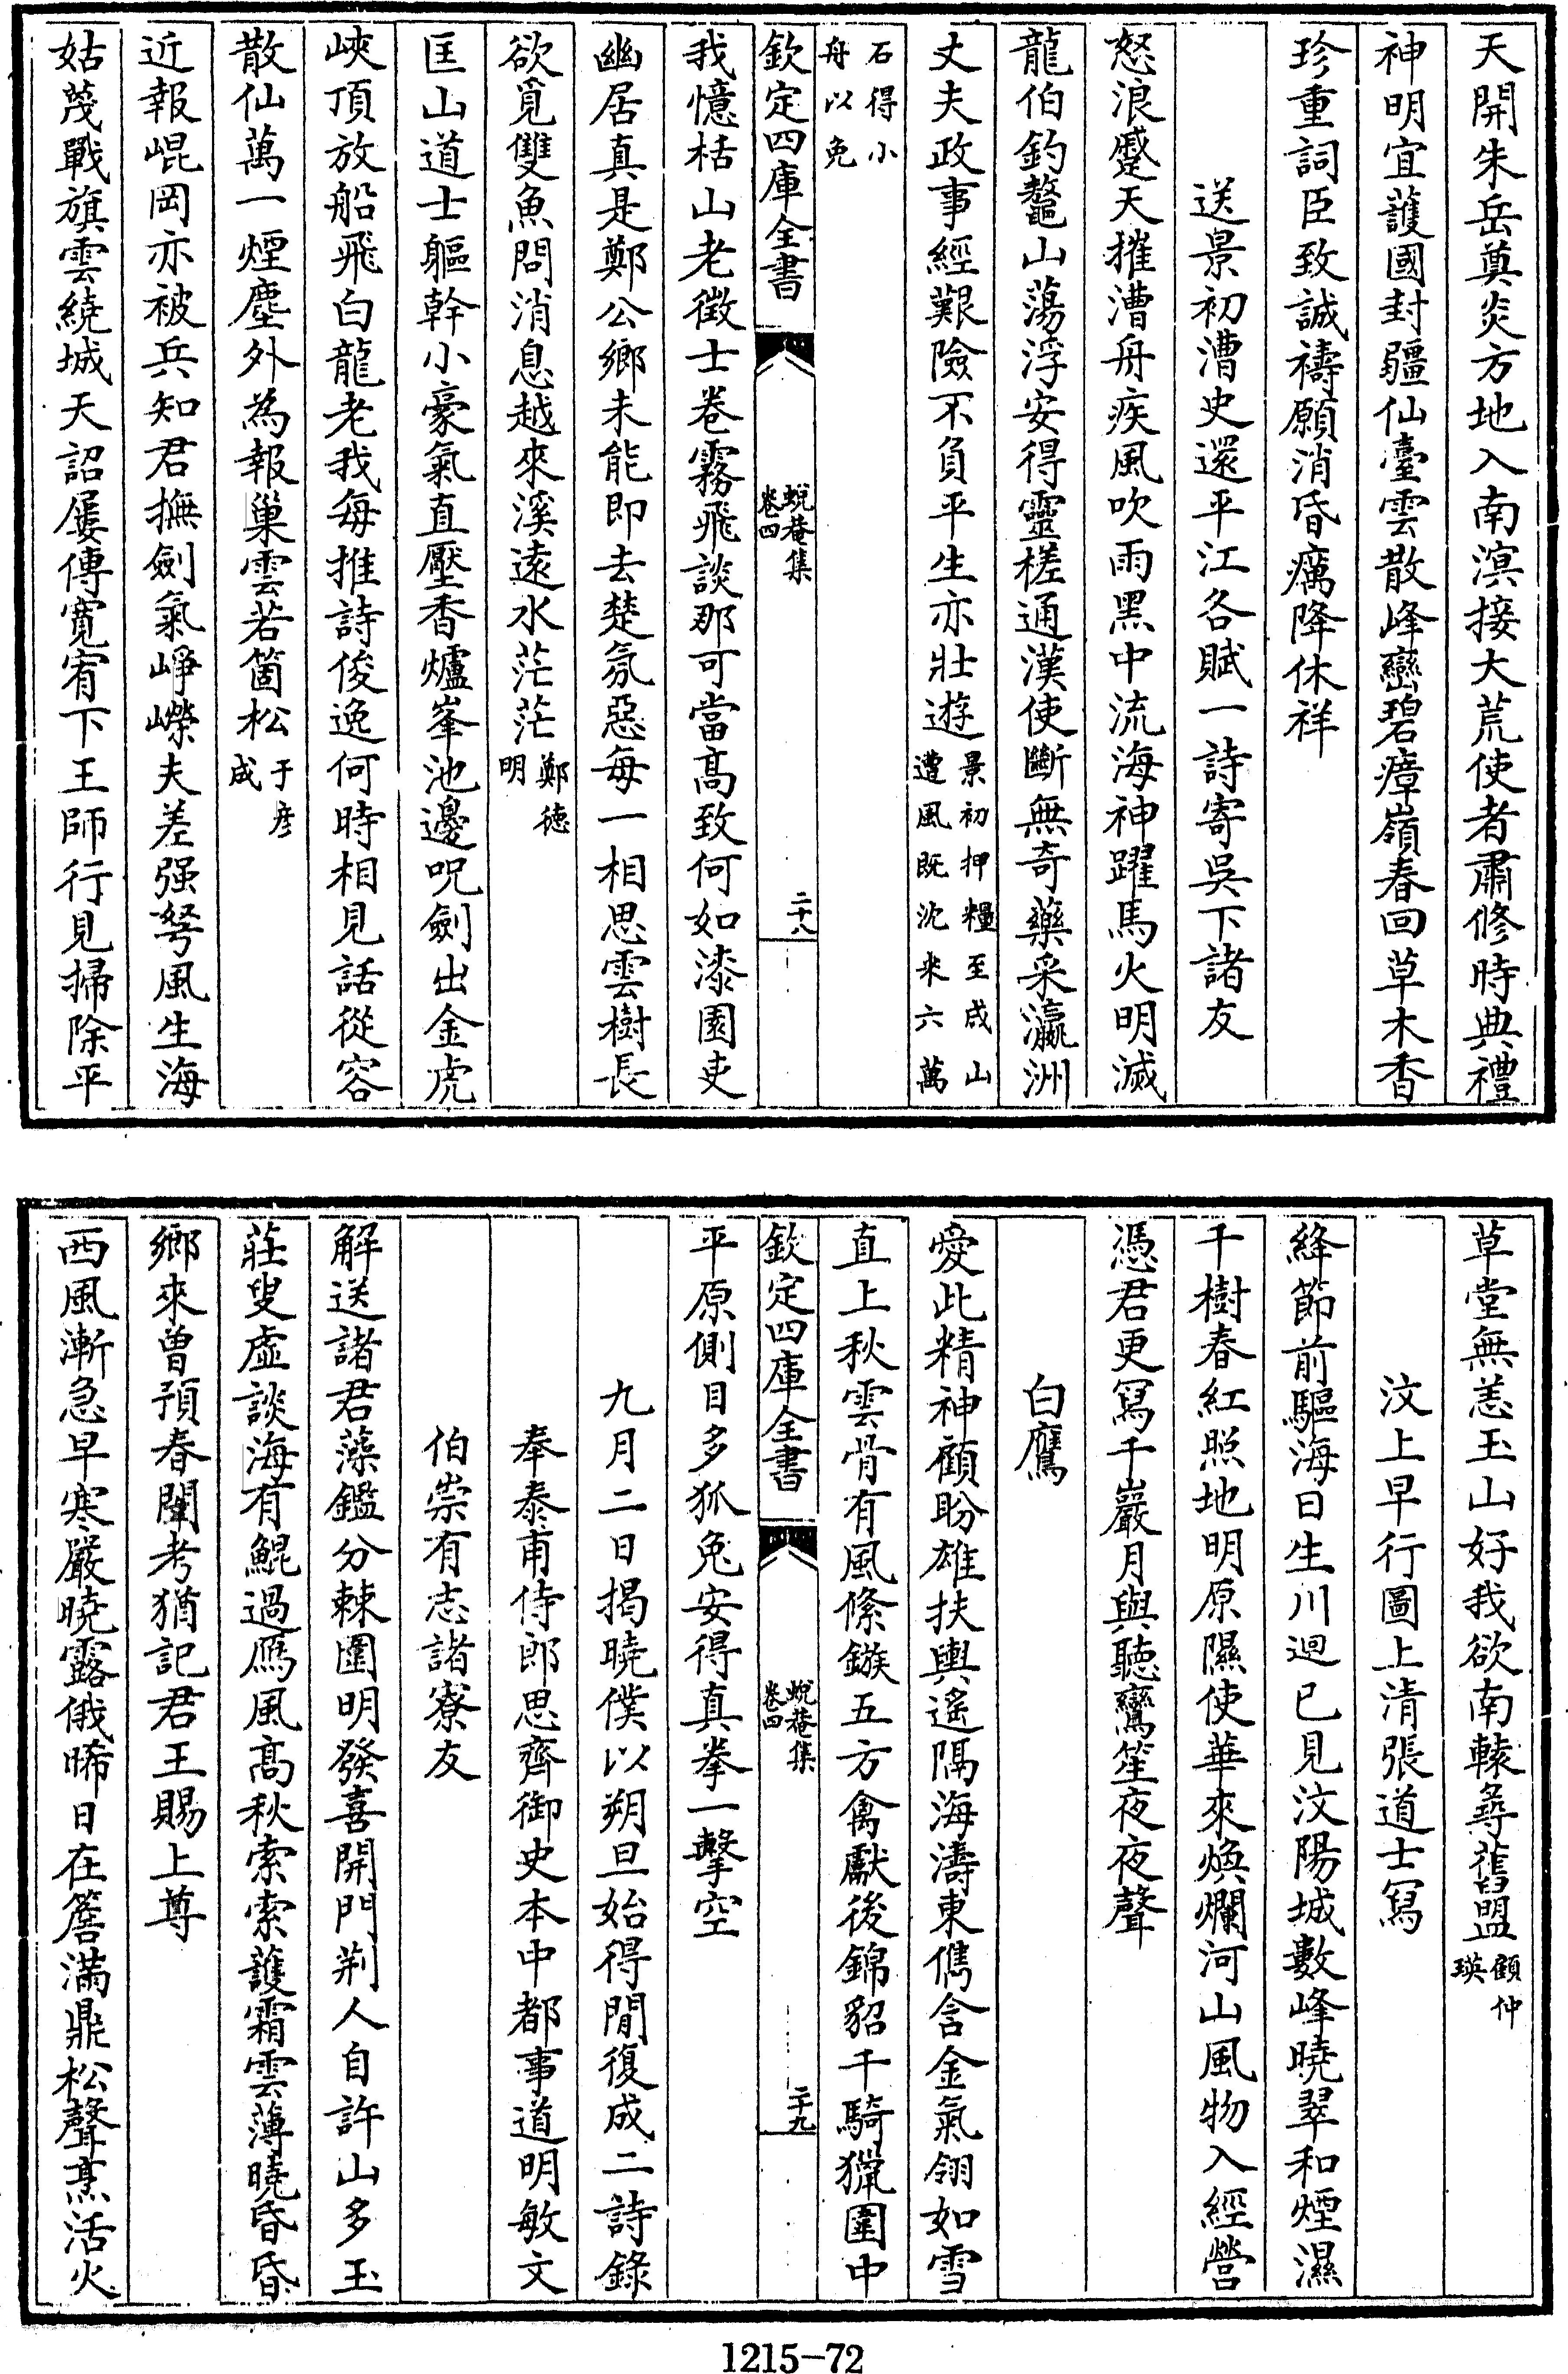 天開朱岳奠炎方地入南溟接大荒使者肅修時典禮
神明宜護國封疆仙臺雲散峰巒碧瘴嶺春回草木香
珍重詞臣致誠禱願消昏癘降休祥
送景初漕史還平江各賦一詩寄吳下諸友
怒浪蹙天摧漕舟疾風吹雨黑中流海神躍馬火明滅
龍伯釣鼇山蕩浮安得靈槎通漢使斷無奇藥采瀛洲
丈夫政事經艱險不負平生亦壯遊景初押糧至成山遭風既沈米六萬
石得小舟以免
欽定四庫全書
蛻菴集
卷四
二十八
我憶栝山老徵士卷霧飛談那可當高致何如漆園吏
幽居真是鄭公鄉未能即去楚氛惡每一相思雲樹長
欲覓雙魚問消息越來溪遠水茫茫鄭德明
匡山道士軀幹小豪氣直壓香爐峯池邊呪劍出金虎
峽頂放船飛白龍老我每推詩俊逸何時相見話從容
散仙萬一煙塵外為報巢雲若箇松于彦成
近報崐岡亦被兵知君撫劍氣崢嶸夫差强弩風生海
姑蔑戰旗雲繞城天詔屢傳寬宥下王師行見掃除平
草堂無恙玉山好我欲南轅尋舊盟顧仲瑛
汶上早行圖上清張道士寫
絳節前驅海日生川迴已見汶陽城數峰曉翠和煙濕
千樹春紅照地明原隰使華來煥爛河山風物入經營
憑君更寫千巖月與聽鸞笙夜夜聲
白鷹
愛此精神顧盼雄扶輿遙隔海濤東儁含金氣翎如雪
直上秋雲骨有風絛鏃五方禽獻後錦貂千騎獵圍中
欽定四庫全書
蛻菴集
卷四
二十九
平原側目多狐兔安得真拳一擊空
九月二日揭曉僕以朔旦始得閒復成二詩錄
奉泰甫侍郎思齊御史本中都事道明敏文
伯崇有志諸寮友
解送諸君藻鑑分棘圍明發喜開門荆人自許山多玉
莊叟虛談海有鯤過鴈風高秋索索護霜雲薄曉昏昏
鄉來曾預春闈考猶記君王賜上尊
西風漸急早寒嚴曉露俄晞日在簷滿鼎松聲烹活火
1215-72